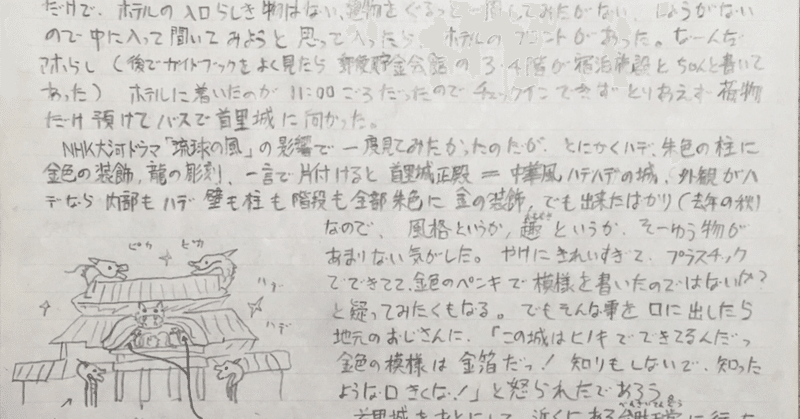 だけで、ホテルの入口らしき物はない、建物をぐるっと一周してみたがない、しょうがない
ので中に入って聞いてみようと思って入ったら、ホテルのフロントがあった。なーんだ
アホらし（後でガイドブックをよく見たら郵便貯金会館の3・4階が宿泊施設とちゃんと書いて
あった） ホテルに着いたのが11:00ごろだったのでチェックインできず とりあえず荷物
だけ預けてバスで首里城に向かった。
NHK大河ドラマ「琉球の風」の影響で一度見てみたかったのだが、とにかくハデ、朱色の柱に
金色の装飾、龍の彫刻、一言で片付けると首里城正殿＝中華風ハデハデの城、外観がハ
デなら内部もハデ 壁も柱も階段も全部朱色に金の装飾、でも出来たばかり（去年の秋）
なので、風格というか、趣というか、そーゆう物が
あまりない気がした。やけにきれいすぎて、プラスチック
でできてて、金色のペンキで模様を書いたのではないか？
と疑ってみたくもなる。でもそんな事を口に出したら
地元のおじさんに、「この城はヒノキでできてるんだっ
金色の模様は金箔だっ！知りもしないで、知った
ような口きくな！」と怒られたであろう
首里城をあとにして、近くにある
に行った
ピカ
ピカ
ハデ
ハデ